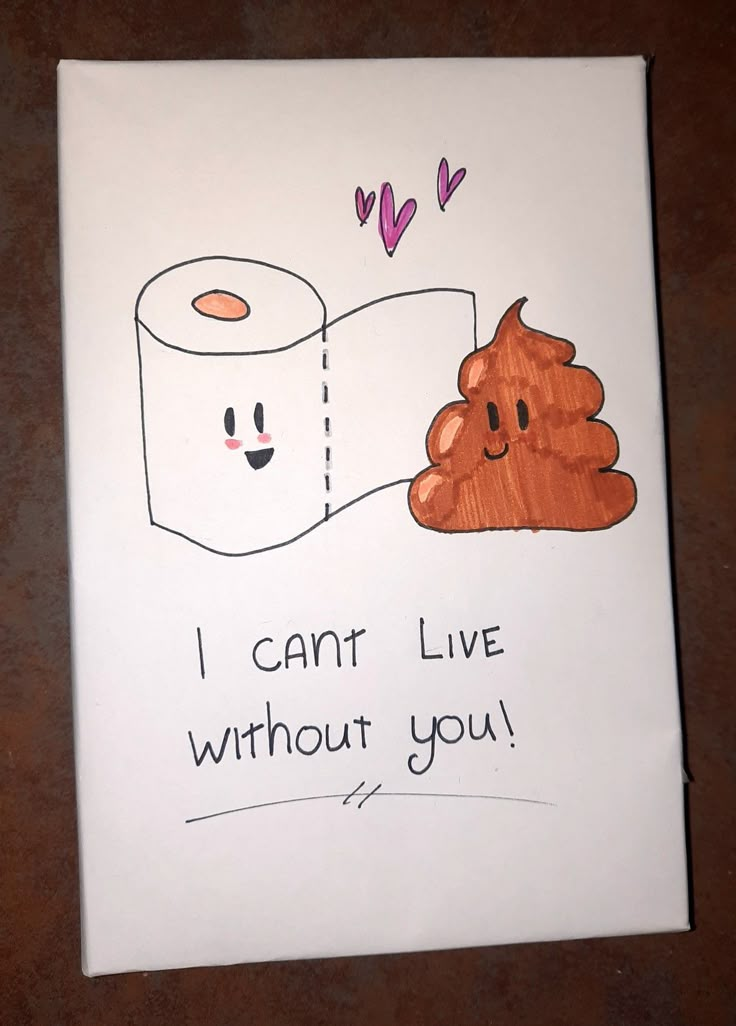 I CANT LIVE
without you!